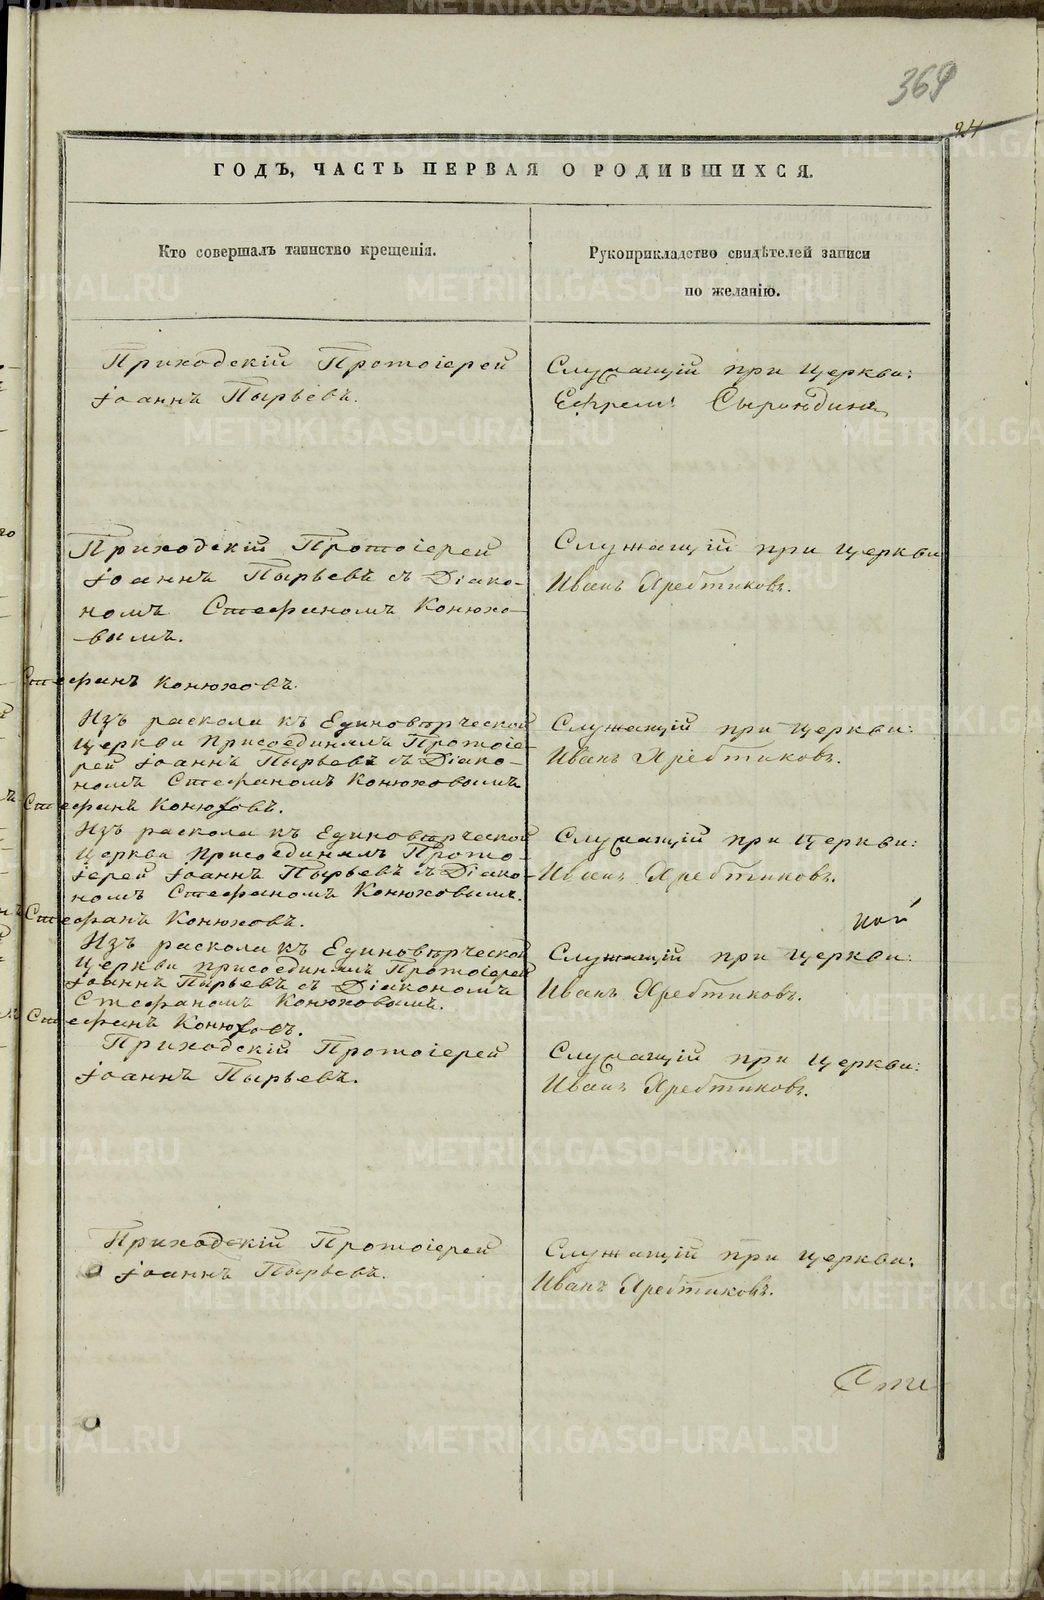 369
24
ГОДЪ, ЧАСТЬ ПЕРВАЯ О РОДИВШИХСЯ.
Кто совершалъ таинство крещенія.
Рукоприкладство свидѣтелей записи
по желанію.
Приходскій Протоіерей
Іоаннъ Пырьевъ.
Служащій при церкви:
Ефремъ
Приходскій Протоіерей
Іоаннъ Пырьевъ съ Діако-
номъ Стефаномъ Конюхо-
-вымъ.
Служащій при церкви
Иванъ Яребтиковъ.
Стефанъ Конюховъ.
Изъ раскола къ Единовѣрческой
церкви присоединялъ Протоіе-
рей Іоаннъ Пырьевъ съ Діако-
номъ Стефаномъ Конюховымъ
Служащій при церкви:
Иванъ Яребтиковъ.
Стефанъ Конюховъ.
Изъ раскола къ Единовѣрческой
церкви присоединялъ Прото-
іерей Іоаннъ Пырьевъ съ Діако-
номъ Стефаномъ Конюховымъ.
Служащій при церкви:
Иванъ Яребтиковъ.
Стефанъ Конюховъ.
Изъ раскола къ Единовѣрческой
церкви присоединялъ Протоіерей
Іоаннъ Пырьевъ съ Діакономъ
Стефаномъ Конюховымъ.
Служащій при церкви:
Иванъ Яребтиковъ.
Стефанъ Конюховъ.
Приходскій Протоіерей
Іоаннъ Пырьевъ.
Служащій при церкви:
Иванъ Яребтиковъ.
Приходскій Протоіерей
Іоаннъ Пырьевъ.
Служащій при церкви:
Иванъ Яребтиковъ.
METRIKI.GASO-URAL.RU